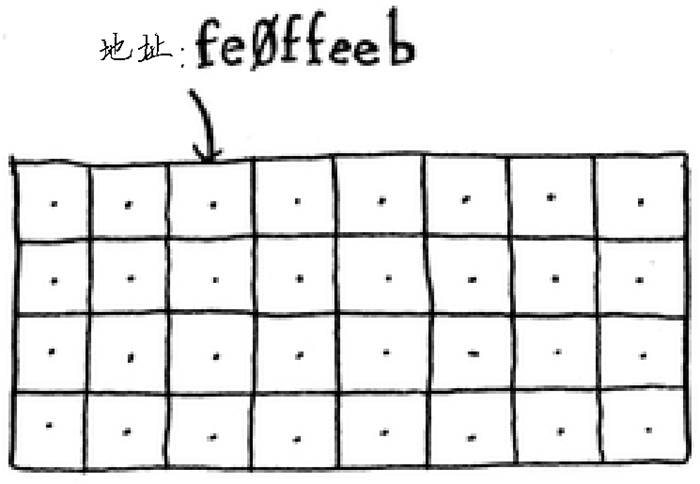 地址:fe0ffeeb